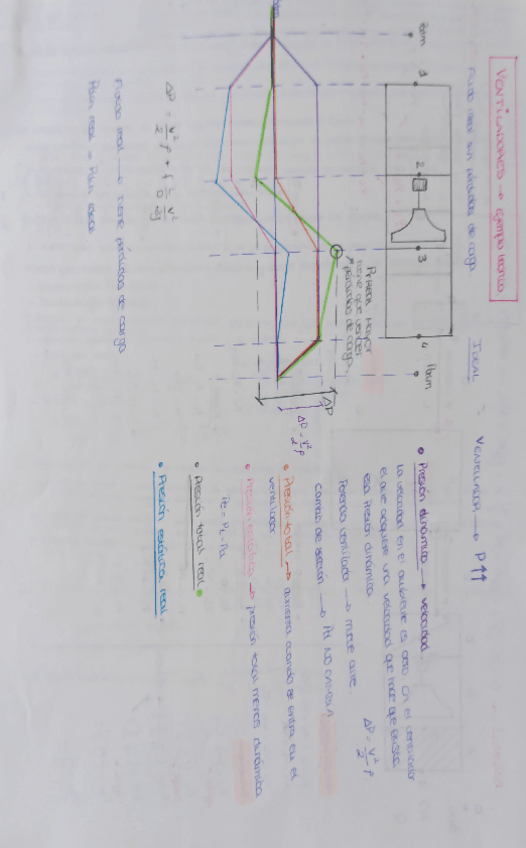 VENTILADORES → ejemplo teórico
Fluido ideal sin pérdidas de carga.
IDEAL
VENTILADOR → P↑↑
Patm
1
2
3
4
Patm
Presión mayor
tiene que vencer
pérdidas de carga.
ΔP
ΔP = v²/2 ρ
ΔP = v²/2 ρ + f L/D v²/2g
Fluido real → tiene pérdidas de carga
• Presión dinámica → velocidad.
la velocidad en el ambiente es cero en el ventilador
el aire adquiere una velocidad que hace que exista
esa presión dinámica
ΔP = v²/2 ρ
ventilador → mueve aire.
cambio de sección → Pd NO CAMBIA
• Presión total → aumenta cuando se entra en el
ventilador
• Presión estática → presión total menos dinámica
Pe = Pt - Pd
• Presión total real •
• Presión estática real.